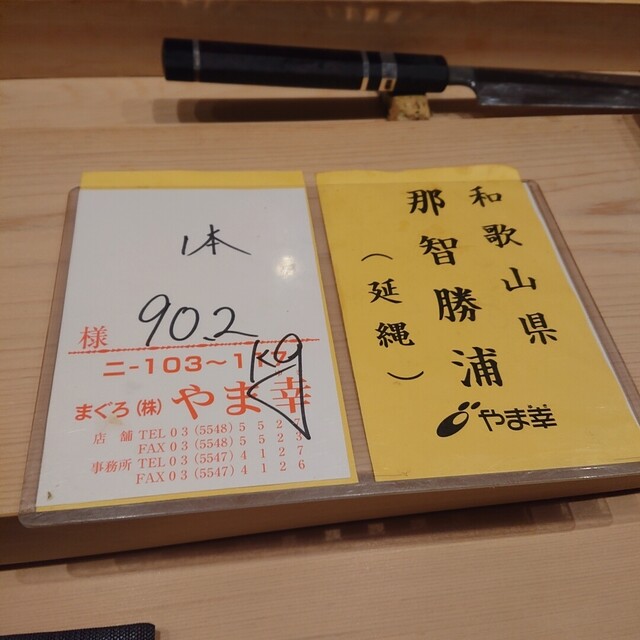 1本
90.2
Kg
様
ニ-103～117
まぐろ(株)やま幸
店舗 TEL03(5548)552
FAX03(5548)5523
事務所 TEL03(5547)4127
FAX03(5547)4126
和歌山県
那智勝浦
(延縄)
やま幸